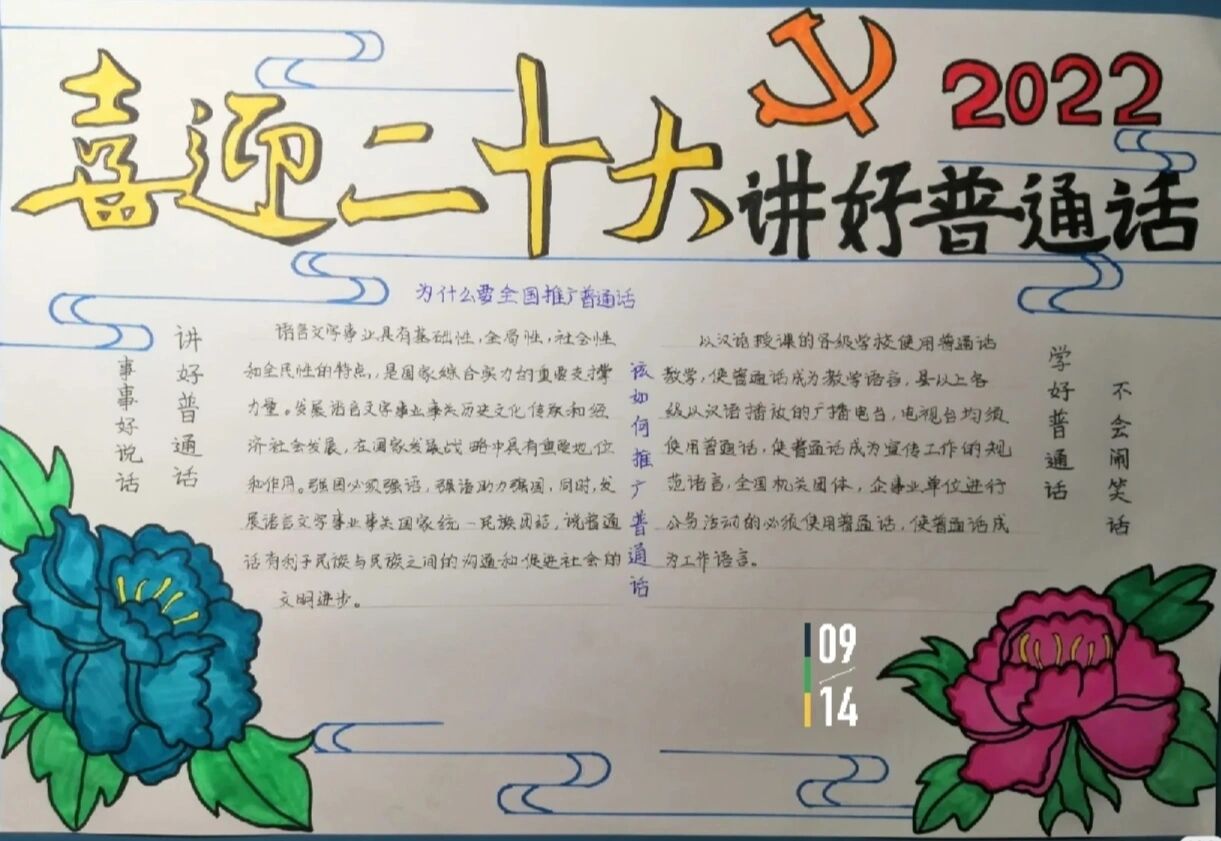 2022
喜迎二十大
讲好普通话
为什么要全国推广普通话
讲好普通话
事事好说话
语言文字事业具有基础性,全局性,社会性
和全民性的特点,是国家综合实力的重要支撑
力量。发展语言文字事业事关历史文化传承和经
济社会发展,在国家发展战略中具有重要地位
和作用。强国必须强语,强语助力强国,同时,发
展语言文字事业事关国家统一民族团结,说普通
话有利于民族与民族之间的沟通和促进社会的
文明进步。
该如何推广普通话
以汉语授课的各级学校使用普通话
教学,使普通话成为教学语言,县以上各
级以汉语播放的广播电台,电视台均须
使用普通话,使普通话成为宣传工作的规
范语言,全国机关团体,企事业单位进行
公务活动的必须使用普通话,使普通话成
为工作语言。
学好普通话
不会闹笑话
09
14